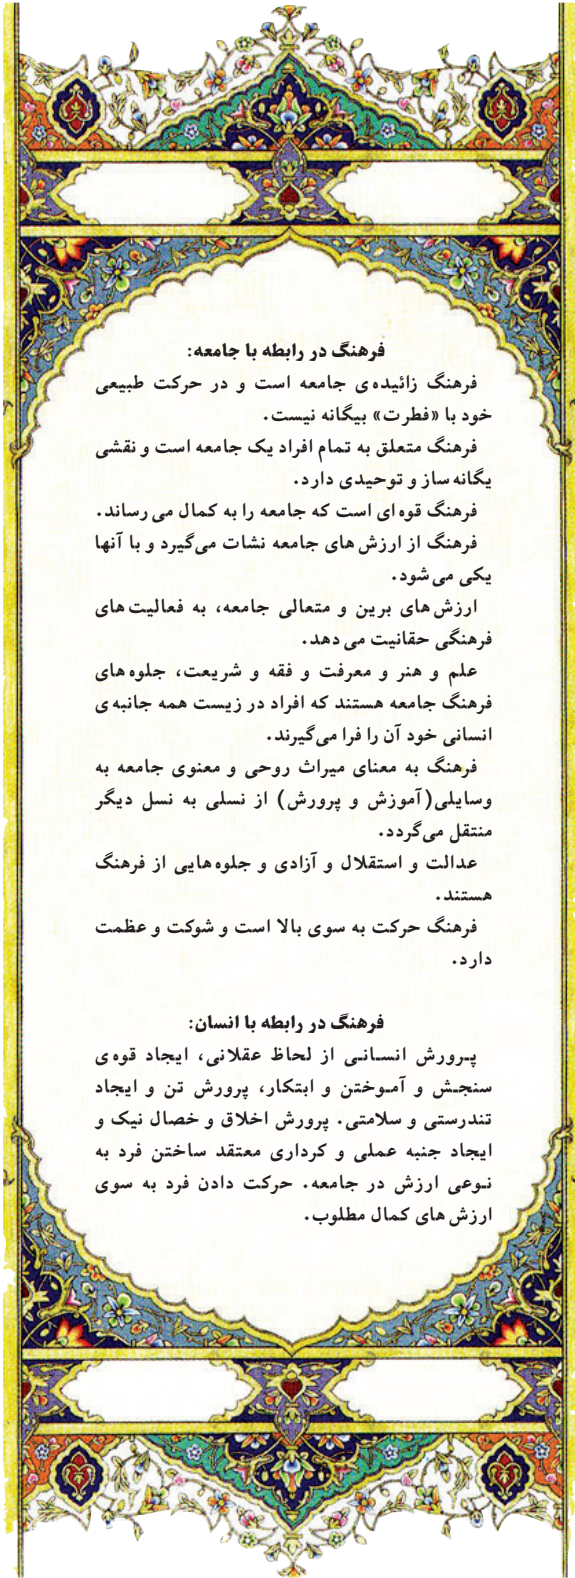 فرهنگ در رابطه با جامعه:
فرهنگ زائیده‌ی جامعه است و در حرکت طبیعی
خود با «فطرت» بیگانه نیست.
فرهنگ متعلق به تمام افراد یک جامعه است و نقشی
یگانه ساز و توحیدی دارد.
فرهنگ قوه ای است که جامعه را به کمال می رساند.
فرهنگ از ارزش های جامعه نشات می‌گیرد و با آنها
یکی می شود.
ارزش های برین و متعالی جامعه، به فعالیت های
فرهنگی حقانیت می دهد.
علم و هنر و معرفت و فقه و شریعت، جلوه های
فرهنگ جامعه هستند که افراد در زیست همه جانبه ی
انسانی خود آن را فرا می‌گیرند.
فرهنگ به معنای میراث روحی و معنوی جامعه به
وسایلی(آموزش و پرورش) از نسلی به نسل دیگر
منتقل می‌گردد.
عدالت و استقلال و آزادی و جلوه هایی از فرهنگ
هستند.
فرهنگ حرکت به سوی بالا است و شوکت و عظمت
دارد.
فرهنگ در رابطه با انسان:
پـرورش انسـانـی از لحاظ عقلانی، ایجاد قوه ی
سنجـش و آمـوختن و ابتکار، پرورش تن و ایجاد
تندرستی و سلامتی. پرورش اخلاق و خصال نیک و
ایجاد جنبه عملی و کرداری معتقد ساختن فرد به
نـوعی ارزش در جامعه. حرکت دادن فرد به سوی
ارزش های کمال مطلوب.